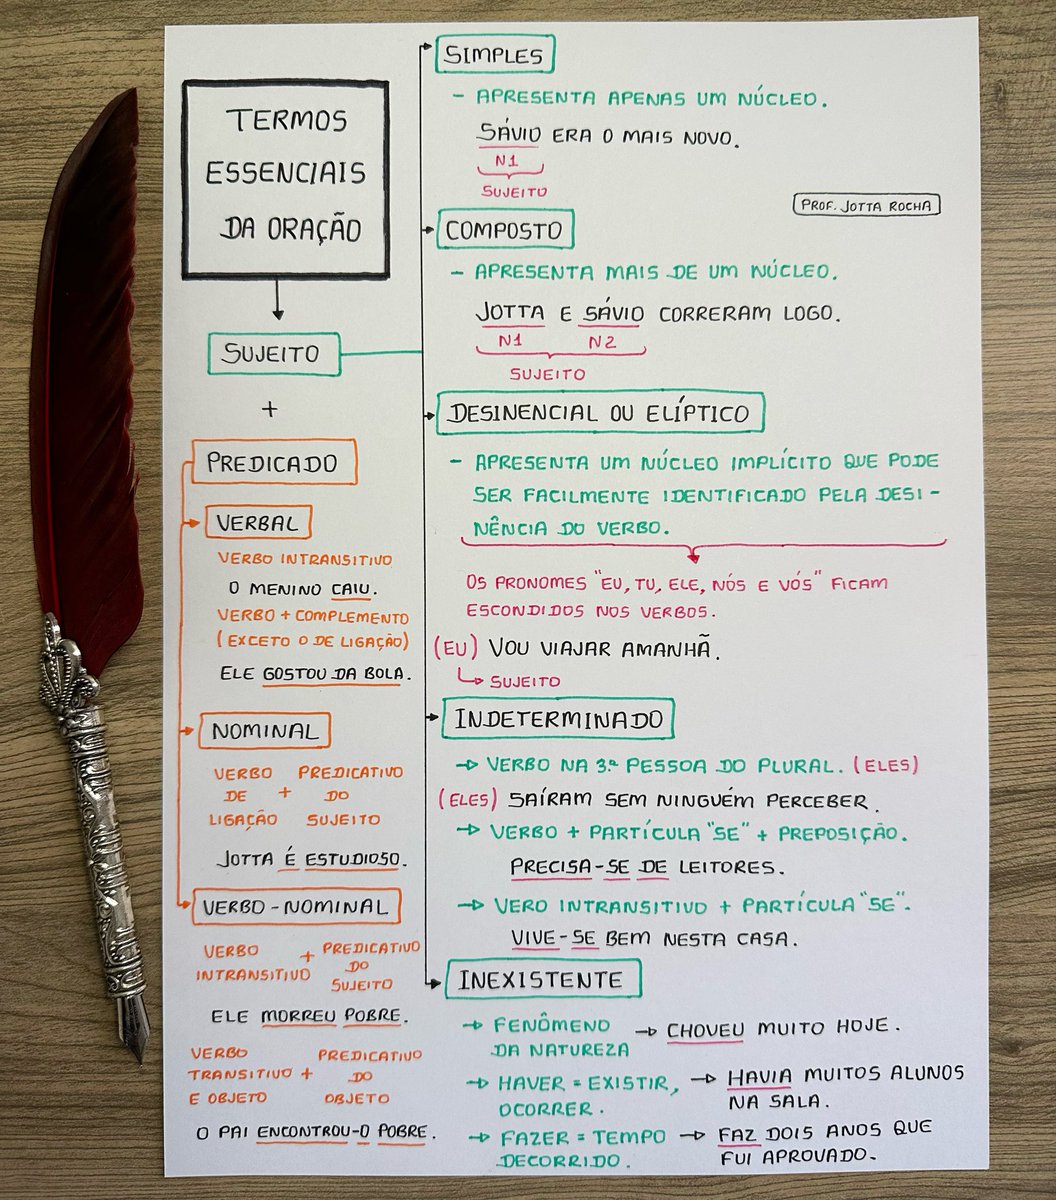 TERMOS
ESSENCIAIS
DA ORAÇÃO
SUJEITO
+
PREDICADO
VERBAL
VERBO INTRANSITIVO
O MENINO CAIU.
VERBO + COMPLEMENTO
(EXCETO O DE LIGAÇÃO)
ELE GOSTOU DA BOLA.
NOMINAL
VERBO DE LIGAÇÃO + PREDICATIVO DO SUJEITO
JOTTA É ESTUDIOSO.
VERBO-NOMINAL
VERBO INTRANSITIVO + PREDICATIVO DO SUJEITO
ELE MORREU POBRE.
VERBO TRANSITIVO E OBJETO + PREDICATIVO DO OBJETO
O PAI ENCONTROU-O POBRE.
SIMPLES
- APRESENTA APENAS UM NÚCLEO.
SÁVIO ERA O MAIS NOVO.
N1
SUJEITO
PROF. JOTTA ROCHA
COMPOSTO
- APRESENTA MAIS DE UM NÚCLEO.
JOTTA E SÁVIO CORRERAM LOGO.
N1 N2
SUJEITO
DESINENCIAL OU ELÍPTICO
- APRESENTA UM NÚCLEO IMPLÍCITO QUE PODE
SER FACILMENTE IDENTIFICADO PELA DESI-
NÊNCIA DO VERBO.
OS PRONOMES "EU, TU, ELE, NÓS E VÓS" FICAM
ESCONDIDOS NOS VERBOS.
(EU) VOU VIAJAR AMANHÃ.
SUJEITO
INDETERMINADO
→ VERBO NA 3.ª PESSOA DO PLURAL. (ELES)
(ELES) SAÍRAM SEM NINGUÉM PERCEBER.
→ VERBO + PARTÍCULA "SE" + PREPOSIÇÃO.
PRECISA-SE DE LEITORES.
→ VERO INTRANSITIVO + PARTÍCULA "SE".
VIVE-SE BEM NESTA CASA.
INEXISTENTE
→ FENÔMENO → CHOVEU MUITO HOJE.
DA NATUREZA
→ HAVER = EXISTIR, → HAVIA MUITOS ALUNOS
OCORRER. NA SALA.
→ FAZER = TEMPO → FAZ DOIS ANOS QUE
DECORRIDO. FUI APROVADO.